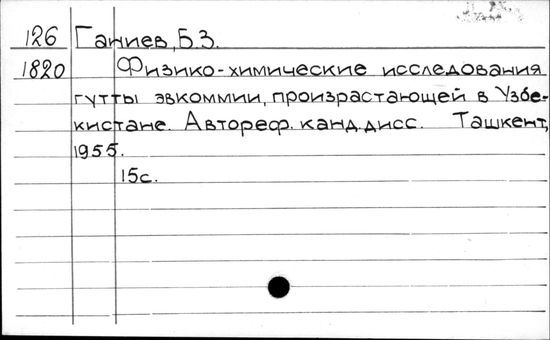 126 Ганиев, Б.З.
1820 Физико-химические исследования
гутты эвкоммии, произрастающей в Узбе-
кистане. Автореф. канд. дисс. Ташкент,
1955.
15с.